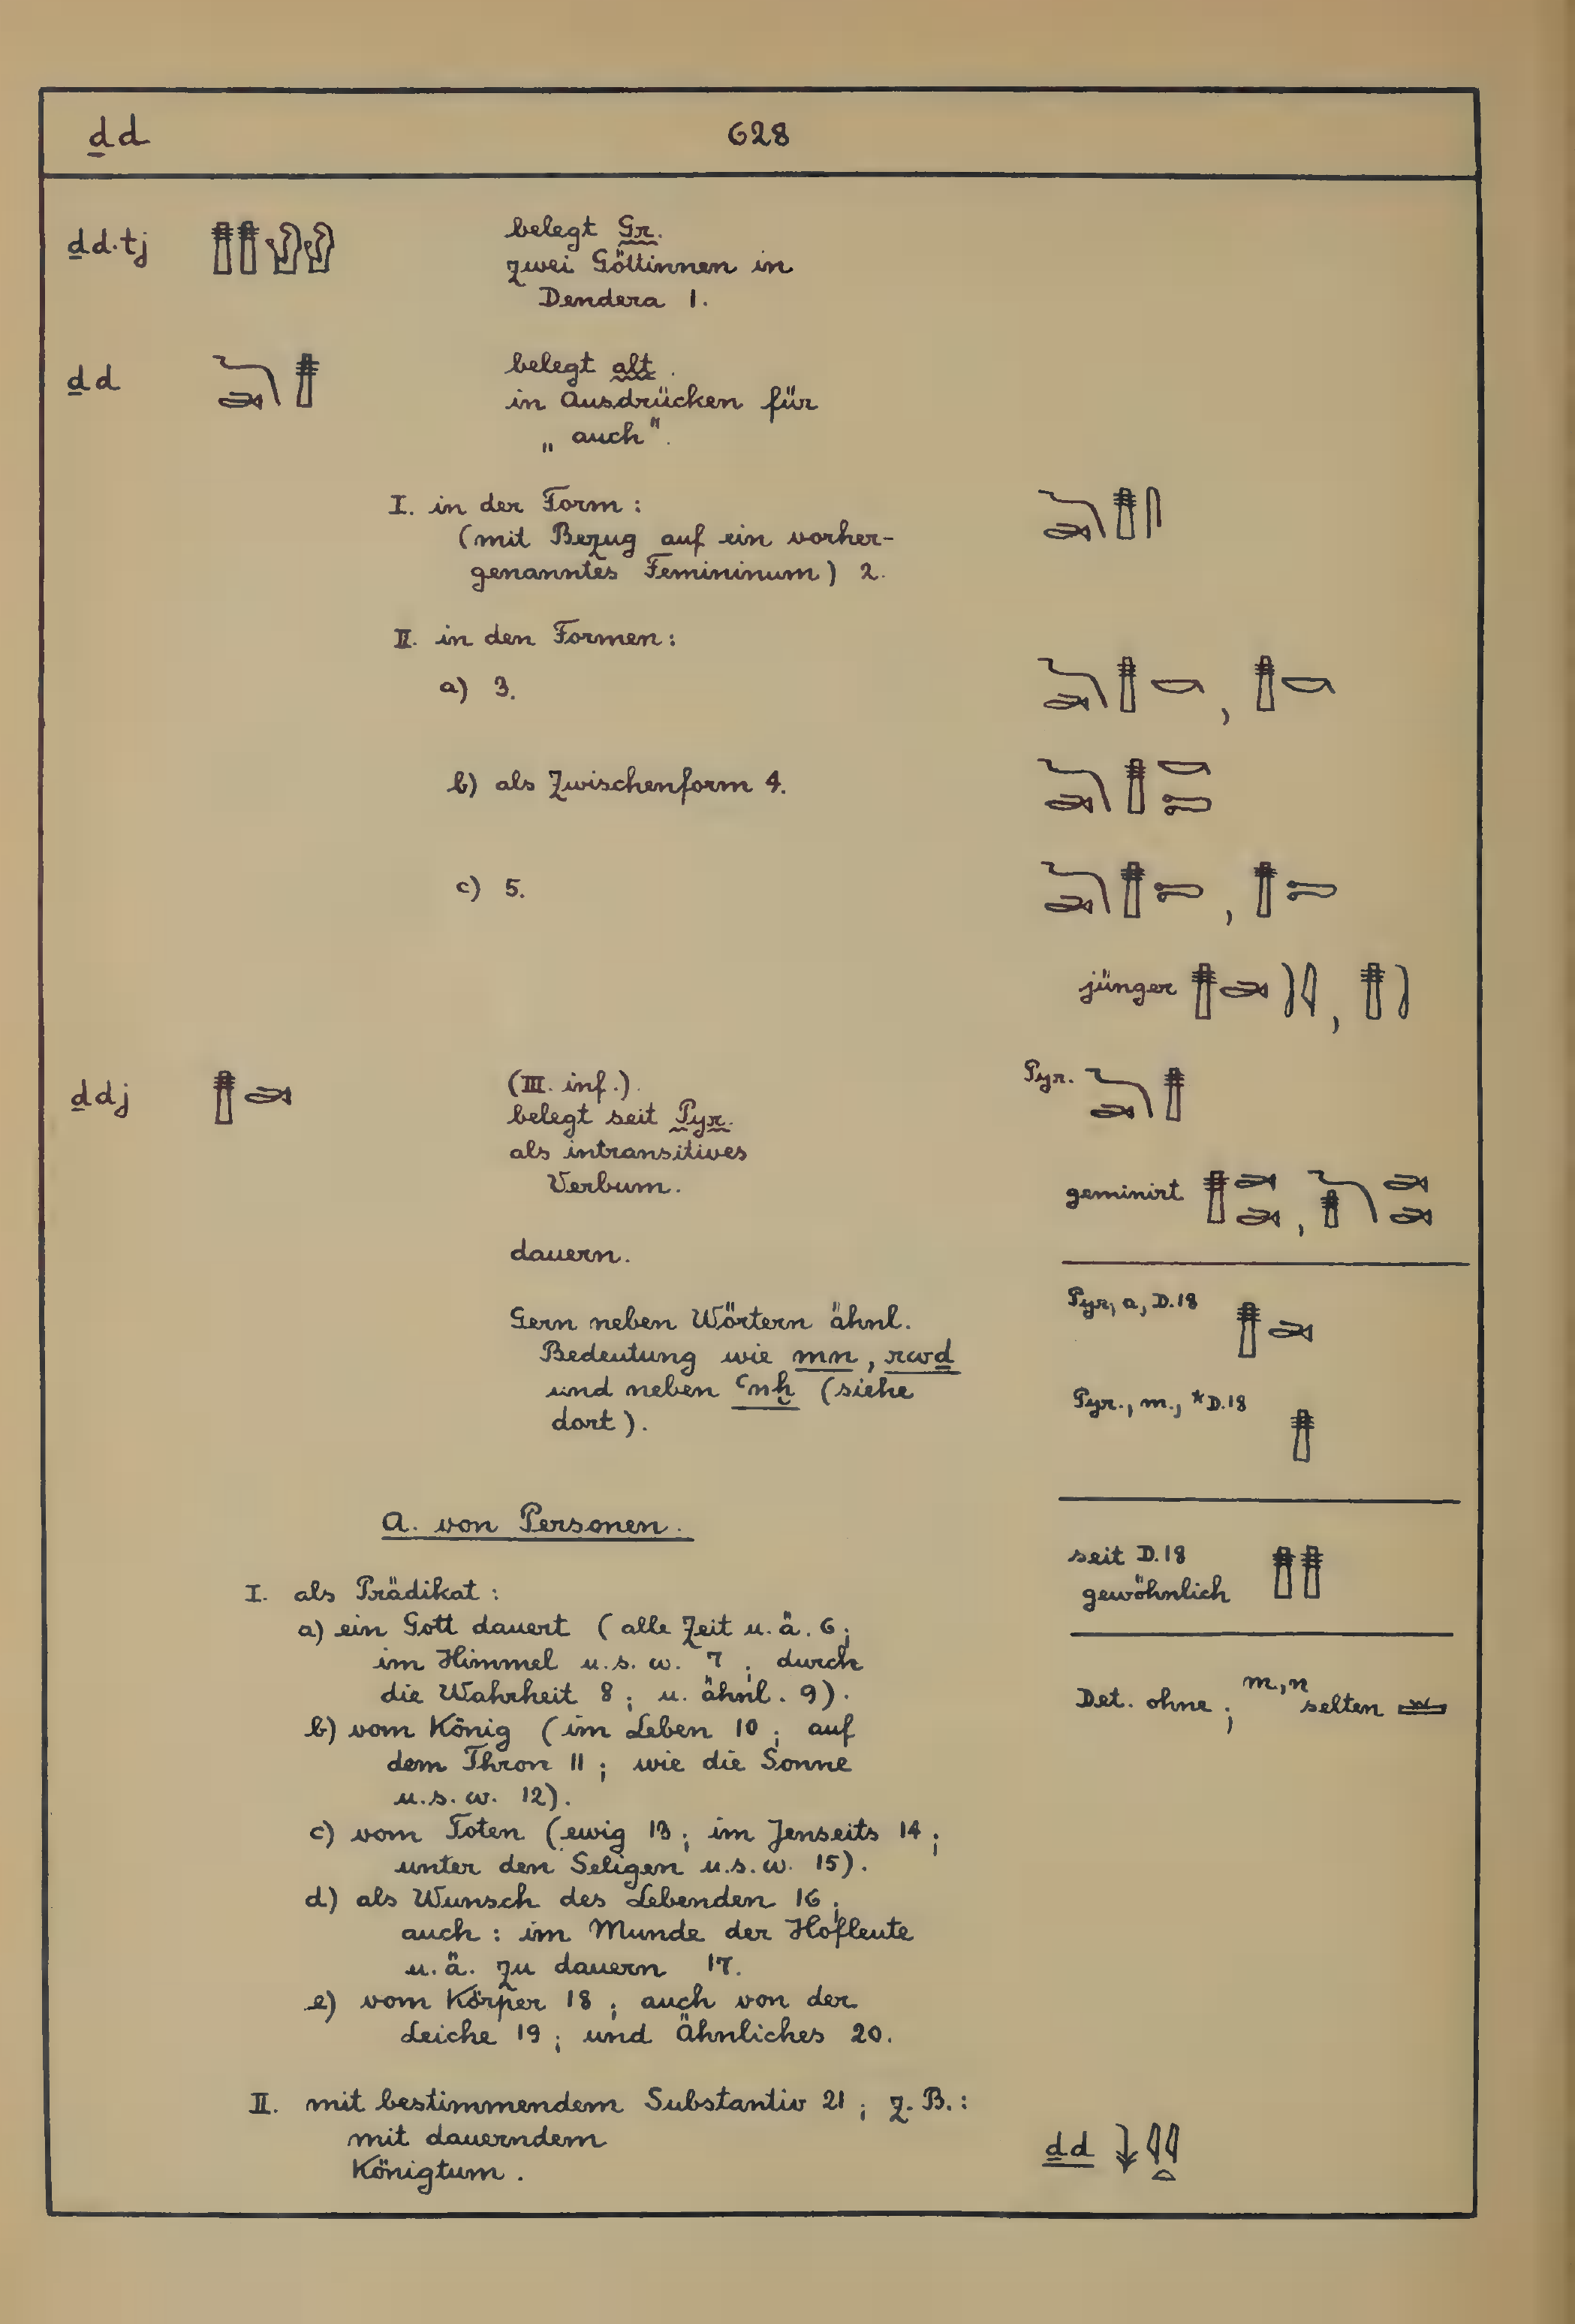 ḏd 628
ḏd·tj 𓊽𓊽𓆗𓆗 belegt Gr.
zwei Göttinnen in
Dendera 1.
ḏd 𓆓𓂧𓊽 belegt alt.
in Ausdrücken für
„auch".
I. in der Form: 𓆓𓂧𓊽𓋴
(mit Bezug auf ein vorher-
genanntes Femininum) 2.
II. in den Formen:
a) 3. 𓆓𓂧𓊽𓎡, 𓊽𓎡
b) als Zwischenform 4. 𓆓𓂧𓊽𓎡𓍿
c) 5. 𓆓𓂧𓊽𓍿, 𓊽𓍿
jünger
ḏdj 𓊽𓂧 (III. inf.). Pyr. 𓆓𓂧𓊽
belegt seit Pyr.
als intransitives
Verbum.
geminirt 𓊽𓂧𓂧, 𓆓𓊽𓂧𓂧
dauern.
Gern neben Wörtern ähnl.
Bedeutung wie mn, rwḏ
und neben ꜥnḫ (siehe
dort).
Pyr., a, D.18 𓊽𓂧
Pyr., m., *D.18 𓊽
A. von Personen.
seit D.18
gewöhnlich 𓊽𓊽
I. als Prädikat:
a) ein Gott dauert (alle Zeit u. ä. 6;
im Himmel u. s. w. 7; durch
die Wahrheit 8; u. ähnl. 9).
Det. ohne; m,n selten 𓏛
b) vom König (im Leben 10; auf
dem Thron 11; wie die Sonne
u. s. w. 12).
c) vom Toten (ewig 13; im Jenseits 14;
unter den Seligen u. s. w. 15).
d) als Wunsch des Lebenden 16;
auch: im Munde der Hofleute
u. ä. zu dauern 17.
e) vom Körper 18; auch von der
Leiche 19; und Ähnliches 20.
II. mit bestimmendem Substantiv 21; z. B.:
mit dauerndem
Königtum. ḏd 𓇓𓇌𓏏